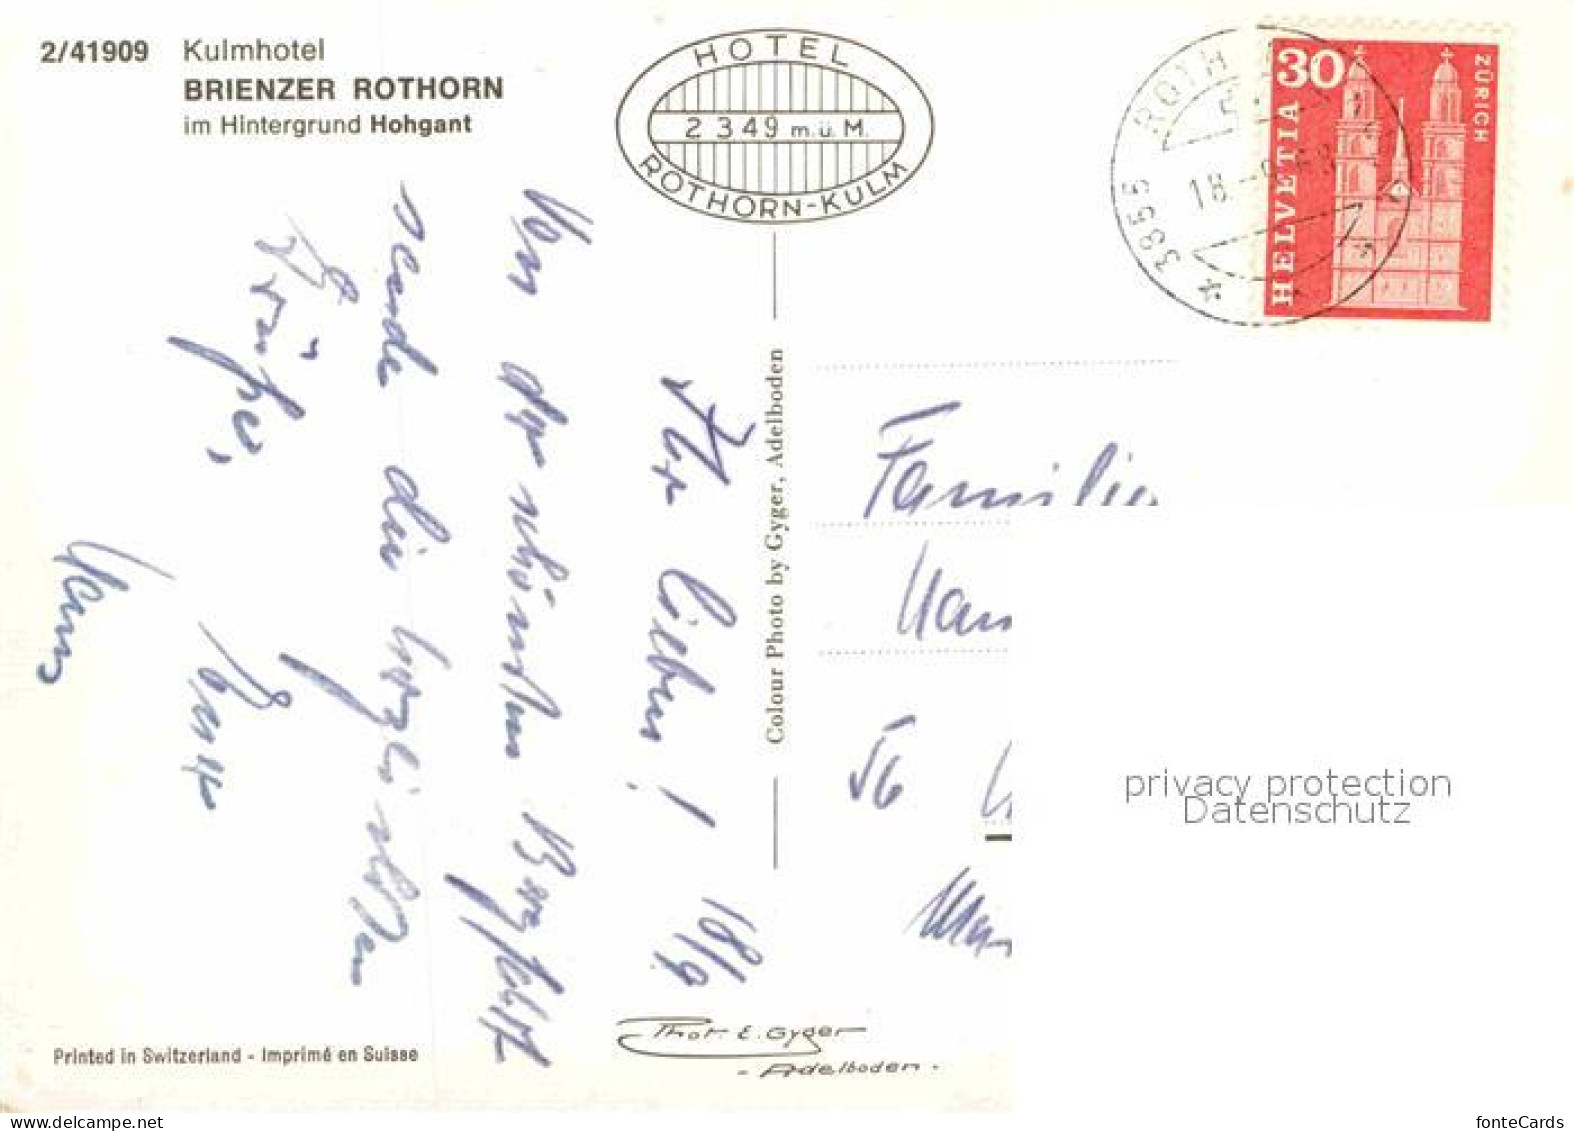 2/41909 Kulmhotel
BRIENZER ROTHORN
im Hintergrund Hohgant
HOTEL
2349 m.ü.M.
ROTHORN-KULM
3855 ROTH
18
30
ZÜRICH
HELVETIA
Colour Photo by Gyger, Adelboden
18/9
Ihr lieben!
Von der schönsten Bergfahrt
sende die herzlichsten
Grüße,
Hans
Familie
56
privacy protection
Datenschutz
Phot. E. Gyger
- Adelboden -
Printed in Switzerland - Imprimé en Suisse
www.delcampe.net
fonteCards